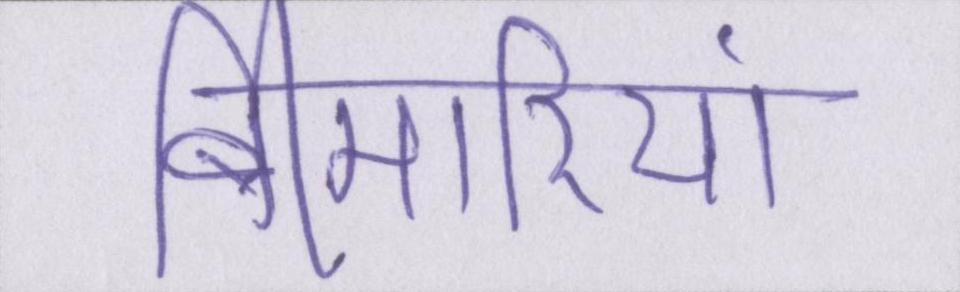 बीमारियां